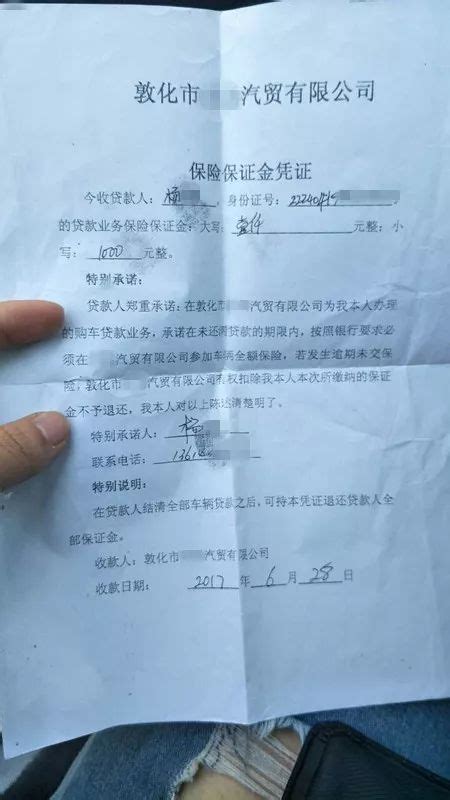 敦化市 汽贸有限公司
保险保证金凭证
今收贷款人：杨 ，身份证号：22240419
的贷款业务保险保证金：大写：壹仟 元整；小
写：1000 元整。
特别承诺：
贷款人郑重承诺：在敦化市 汽贸有限公司为我本人办理
的购车贷款业务，承诺在未还清贷款的期限内，按照银行要求必
须在 汽贸有限公司参加车辆全额保险，若发生逾期未交保
险，敦化市 汽贸有限公司有权扣除我本人本次所缴纳的保证
金不予退还，我本人对以上陈述清楚明了。
特别承诺人：杨
联系电话：1361
特别说明：
在贷款人结清全部车辆贷款之后，可持本凭证退还贷款人全
部保证金。
收款人：敦化市 汽贸有限公司
收款日期： 2017 年 6 月 28 日